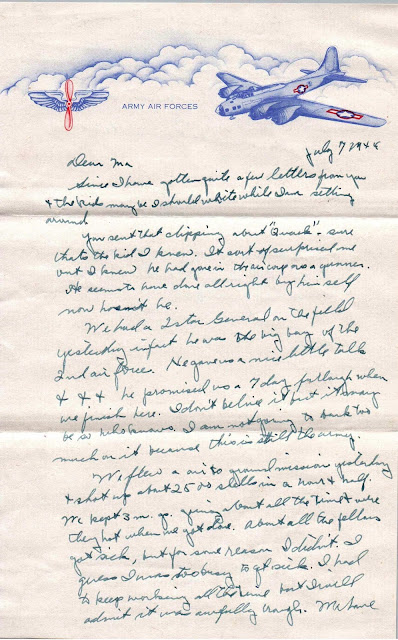 ARMY AIR FORCES
July 7 1944
Dear Ma
Since I have gotten quite a few letters from you
& the kids maybe I should write while I am setting
around
You sent that clipping about "Quack" - sure
thats the kid I knew. It sort of surprised me
but I knew he had gone in the air corp as a gunner.
He seems to have done all right by him self
now hasn't he.
We had a 2 star General on the field
yesterday infact he was the big boy of the
2nd air force. He gave us a nice little talk
& & & he promised us a 7 day furlough when
we finish here. I don't believe it but it may
be so who knows. I am not going to bank too
much on it because this is still the army.
We flew a air to ground mission yesterday
& shot up about 2500 shells in a hour & half.
We kept 3 m. gs. going about all the time & were
they hot when we got done. About all the fellows
got sick, but for some reason I didn't. I
guess I was too busy to get sick. I had
to keep working all the time but I will
admit it was awfully rough. We have